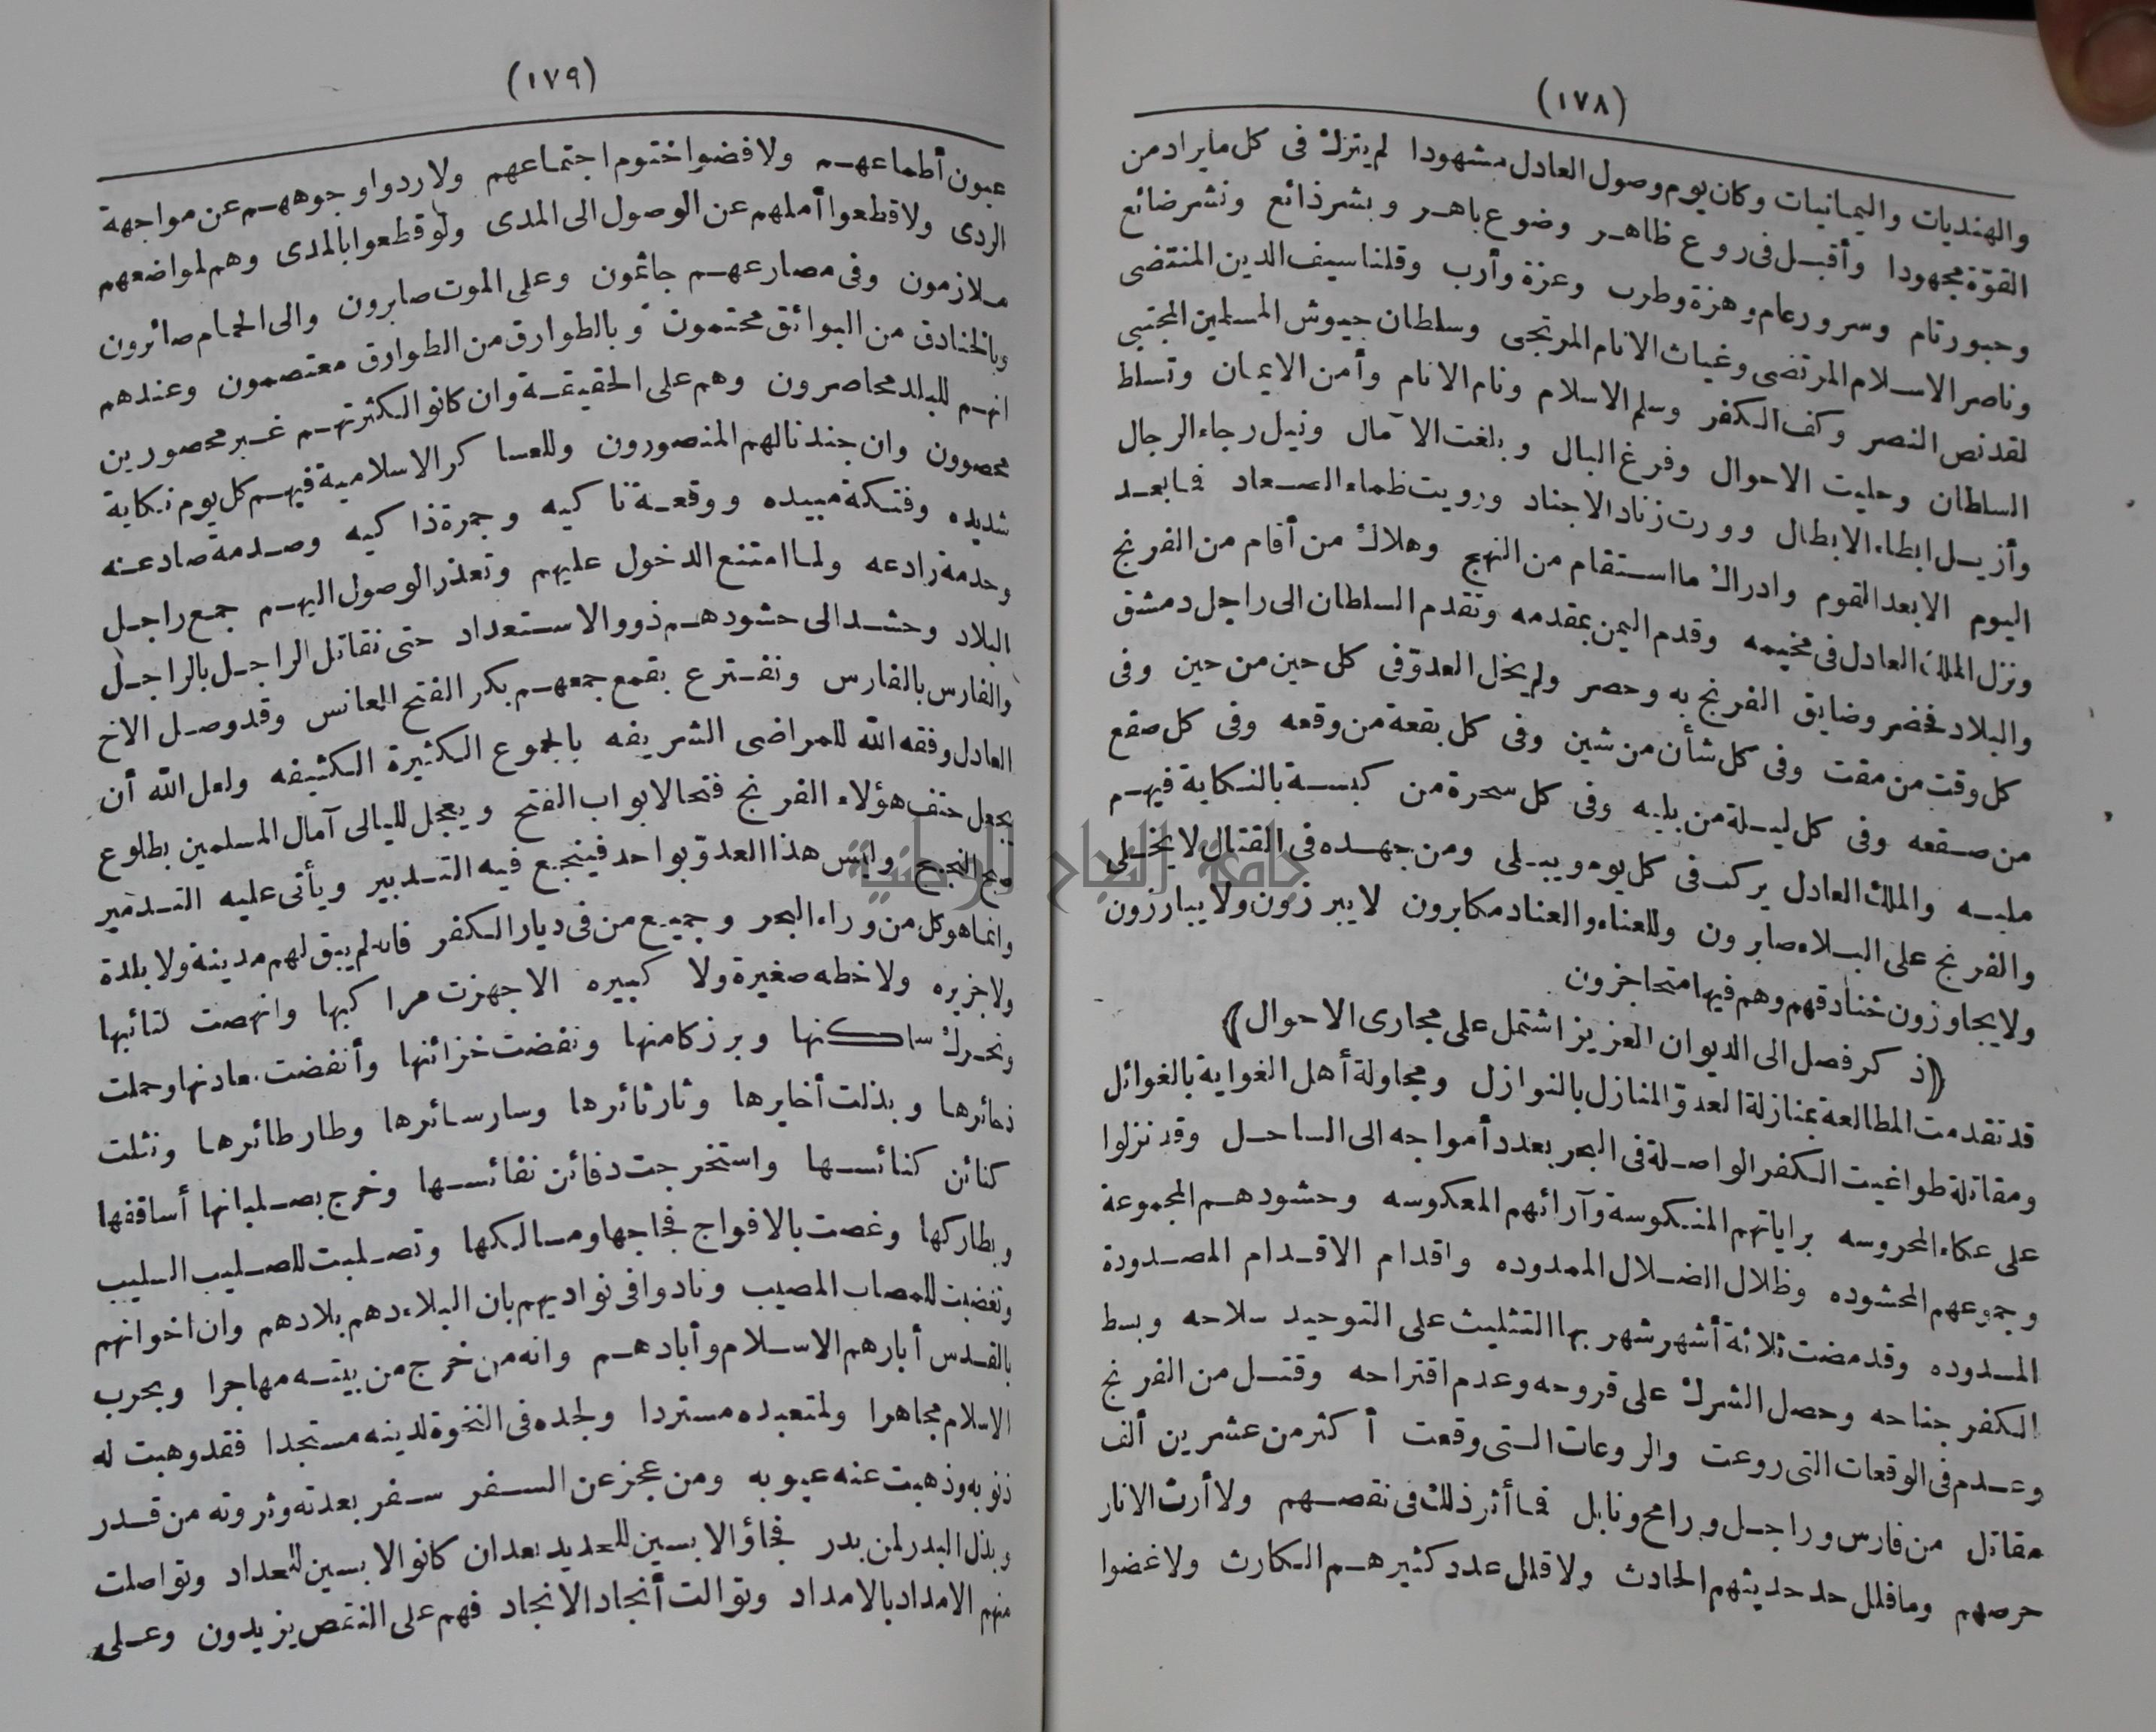 (١٧٨)
والهنديات واليمانيات وكان يوم وصول العادل مشهودا لم يترك فى كل ما يراد من
القوّة مجهودا وأقبل فى روع ظاهر وضوع باهر وبشر ذائع ونشر ضائع
وحبور تام وسرور عام وهزة وطرب وعزة وأرب وقلنا سيف الدين المنتضى
وناصر الاسلام المرتضى وغياث الانام المرتجى وسلطان جيوش المسلمين المجتبى
لقد نص النصر وكف الكفر وسلم الاسلام ونام الانام وأمن الايمان وتسلط
السلطان وحليت الاحوال وفرغ البال وبلغت الآمال ونيل رجاء الرجال
وأزيل ابطاء الابطال وورت زناد الاجناد ورويت ظماء الصعاد فما بعد
اليوم الا بعد القوم وادراك ما استقام من النهج وهلاك من أقام من الفرنج
ونزل الملك العادل فى مخيمه وقدم اليمن بمقدمه وتقدم السلطان الى راجل دمشق
والبلاد فحضر وضايق الفرنج به وحصر ولم يخل العدوّ فى كل حين من حين وفى
كل وقت من مقت وفى كل شأن من شين وفى كل بقعة من وقعه وفى كل صقع
من صقعه وفى كل ليلة من بليه وفى كل سحرة من كبسة بالنكاية فيهم
مليه والملك العادل يركب فى كل يوم ويبلى ومن جهده فى القتال لا يخلى
والفرنج على البلاء صابرون وللعناء والعناد مكابرون لا يبرزون ولا يبارزون
ولا يجاوزون خنادقهم وهم فيها متحاجزون
﴿ذكر فصل الى الديوان العزيز اشتمل على مجارى الاحوال﴾
قد تقدمت المطالعة بمنازلة العدوّ المنازل بالنوازل ومحاولة أهل الغواية بالغوائل
ومقاتلة طواغيت الكفر الواصلة فى البحر بعدد أمواجه الى الساحل وقد نزلوا
على عكاء المحروسه براياتهم المنكوسة وآرائهم المعكوسه وحشودهم المجموعة
وجموعهم المحشوده وظلال الضلال الممدوده واقدام الاقدام المصدودة
المسدوده وقد مضت ثلاثة أشهر شهر بها التثليث على التوحيد سلاحه وبسط
الكفر جناحه وحصل الشرك على قروحه وعدم اقتراحه وقتل من الفرنج
وعدم فى الوقعات التى روعت والروعات التى وقعت أكثر من عشرين ألف
مقاتل من فارس وراجل ورامح ونابل فما أثر ذلك فى نقصهم ولا أرث الا نار
حرصهم وما فلل حد حديثهم الحادث ولا قلل عدد كثيرهم الكارث ولا غضوا
(١٧٩)
عيون أطماعهم ولا فضوا ختوم اجتماعهم ولا ردوا وجوههم عن مواجهة
الردى ولا قطعوا أملهم عن الوصول الى المدى ولو قطعوا بالمدى وهم لمواضعهم
ملازمون وفى مصارعهم جاثمون وعلى الموت صابرون والى الحمام صائرون
وبالخنادق من البوائق محتمون وبالطوارق من الطوارق معتصمون وعندهم
انهم للبلد محاصرون وهم على الحقيقة وان كانوا لكثرتهم غير محصورين
محصوون وان جندنا لهم المنصورون وللعساكر الاسلامية فيهم كل يوم نكاية
شديده وفتكة مبيده ووقعة ناكيه وجمرة ذاكيه وصدمة صادعه
وحدمة رادعه ولما امتنع الدخول عليهم وتعذر الوصول اليهم جمع راجل
البلاد وحشد الى حشودهم ذوو الاستعداد حتى نقاتل الراجل بالراجل
والفارس بالفارس ونفترع بقمع جمعهم بكر الفتح العانس وقد وصل الاخ
العادل وفقه الله للمراضى الشريفه بالجموع الكثيرة الكثيفه ولعل الله أن
يجعل حتف هؤلاء الفرنج فتحا لابواب الفتح ويعجل لليالى آمال المسلمين بطلوع
صبح النجح وليس هذا العدوّ بواحد فينجع فيه التدبير ويأتى عليه التدمير
وانما هو كل من وراء البحر وجميع من فى ديار الكفر فانه لم يبق لهم مدينة ولا بلدة
ولا جزيره ولا خطه صغيرة ولا كبيره الا جهزت مراكبها وانهضت كتائبها
وتحرك ساكنها وبرز كامنها ونفضت خزائنها وأنفضت معادنها وحملت
ذخائرها وبذلت أخايرها وثار ثائرها وسار سائرها وطار طائرها ونثلت
كنائن كنائسها واستخرجت دفائن نفائسها وخرج بصلبانها أساقفها
وبطاركها وغصت بالافواج فجاجها ومسالكها وتصلبت للصليب السليب
وتغضبت للمصاب المصيب ونادوا فى نواديهم بان البلاء دهم بلادهم وان اخوانهم
بالقدس أبارهم الاسلام وأبادهم وانه من خرج من بيته مهاجرا وبحرب
الاسلام مجاهرا ولمتعبده مستردا ولجده فى النخوة لدينه مستجدا فقد وهبت له
ذنوبه وذهبت عنه عيوبه ومن عجز عن السفر سفر بعدته وثروته من قدر
وبذل البدر لمن بدر فجاؤا لابسين للحديد بعد ان كانوا لابسين للعداد وتواصلت
منهم الامداد بالامداد وتوالت أنجاد الانجاد فهم على النقص يزيدون وعلى
جامعة النجاح الوطنية